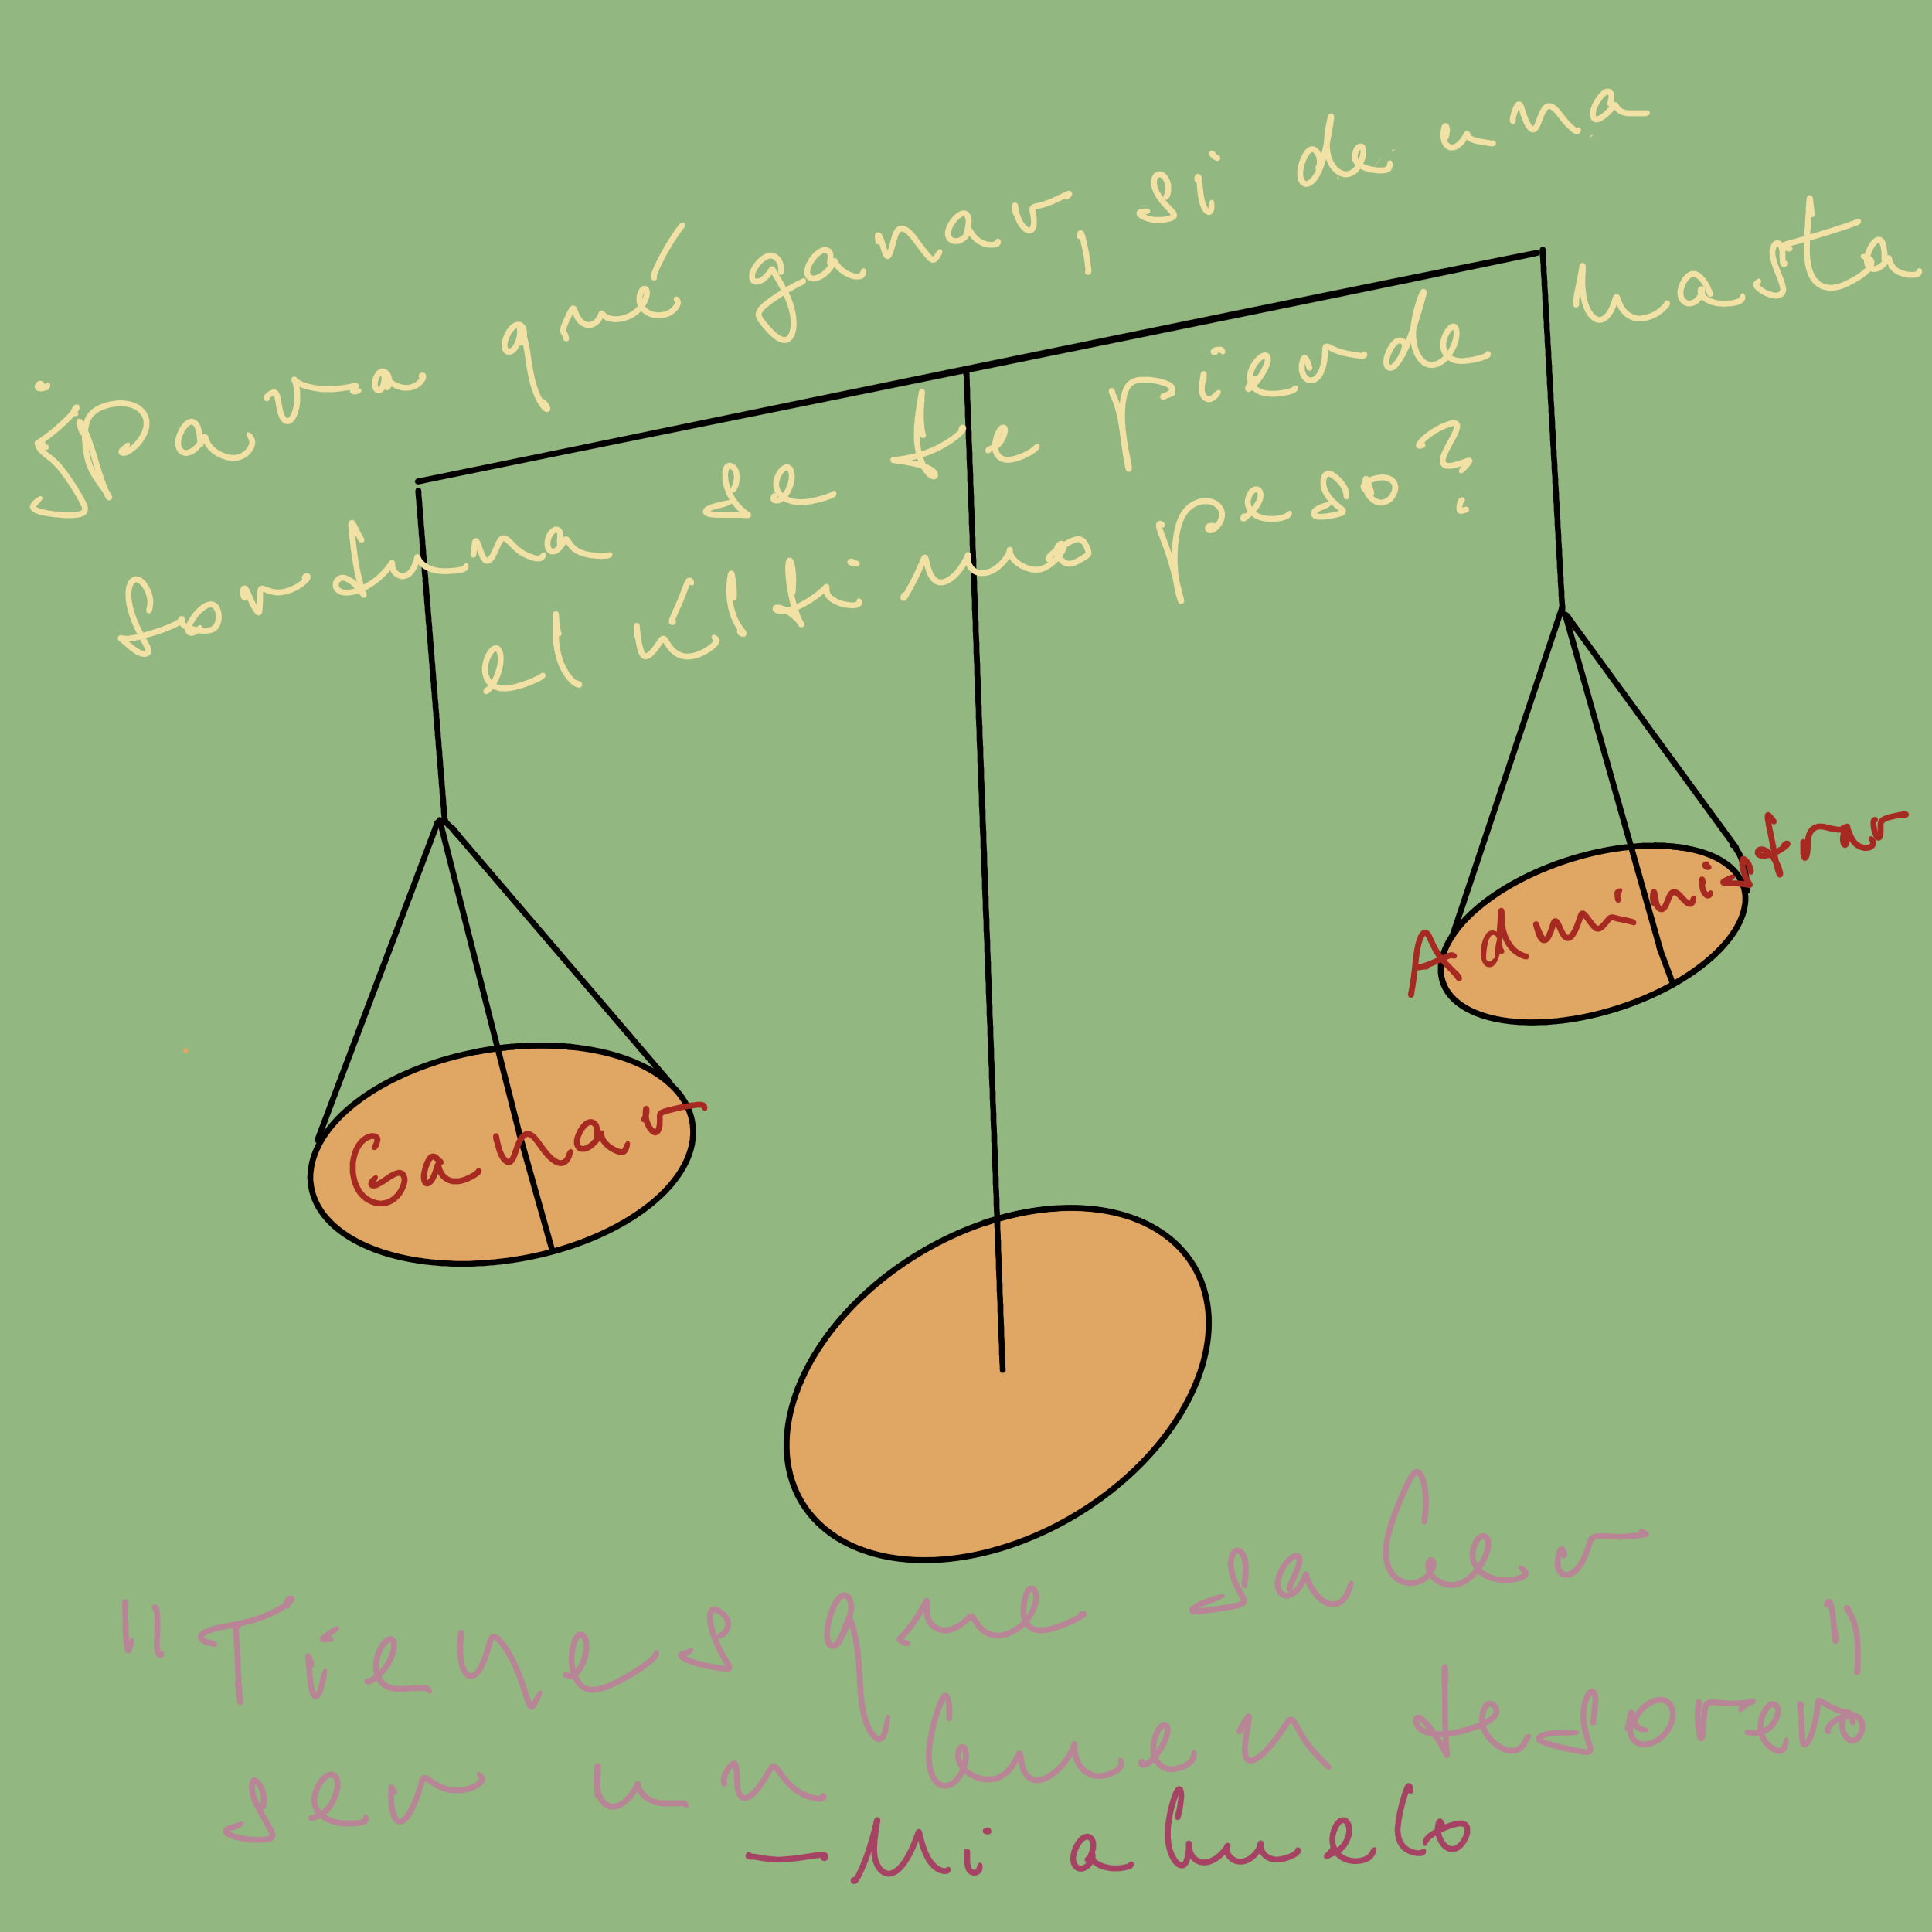 ¿Para qué ganar, si de una
fortuna se te pierde hasta
el último peso?
Administrar
Ganar
"Tienes que saber
ser un buen tesorero"
-Mi abuelo